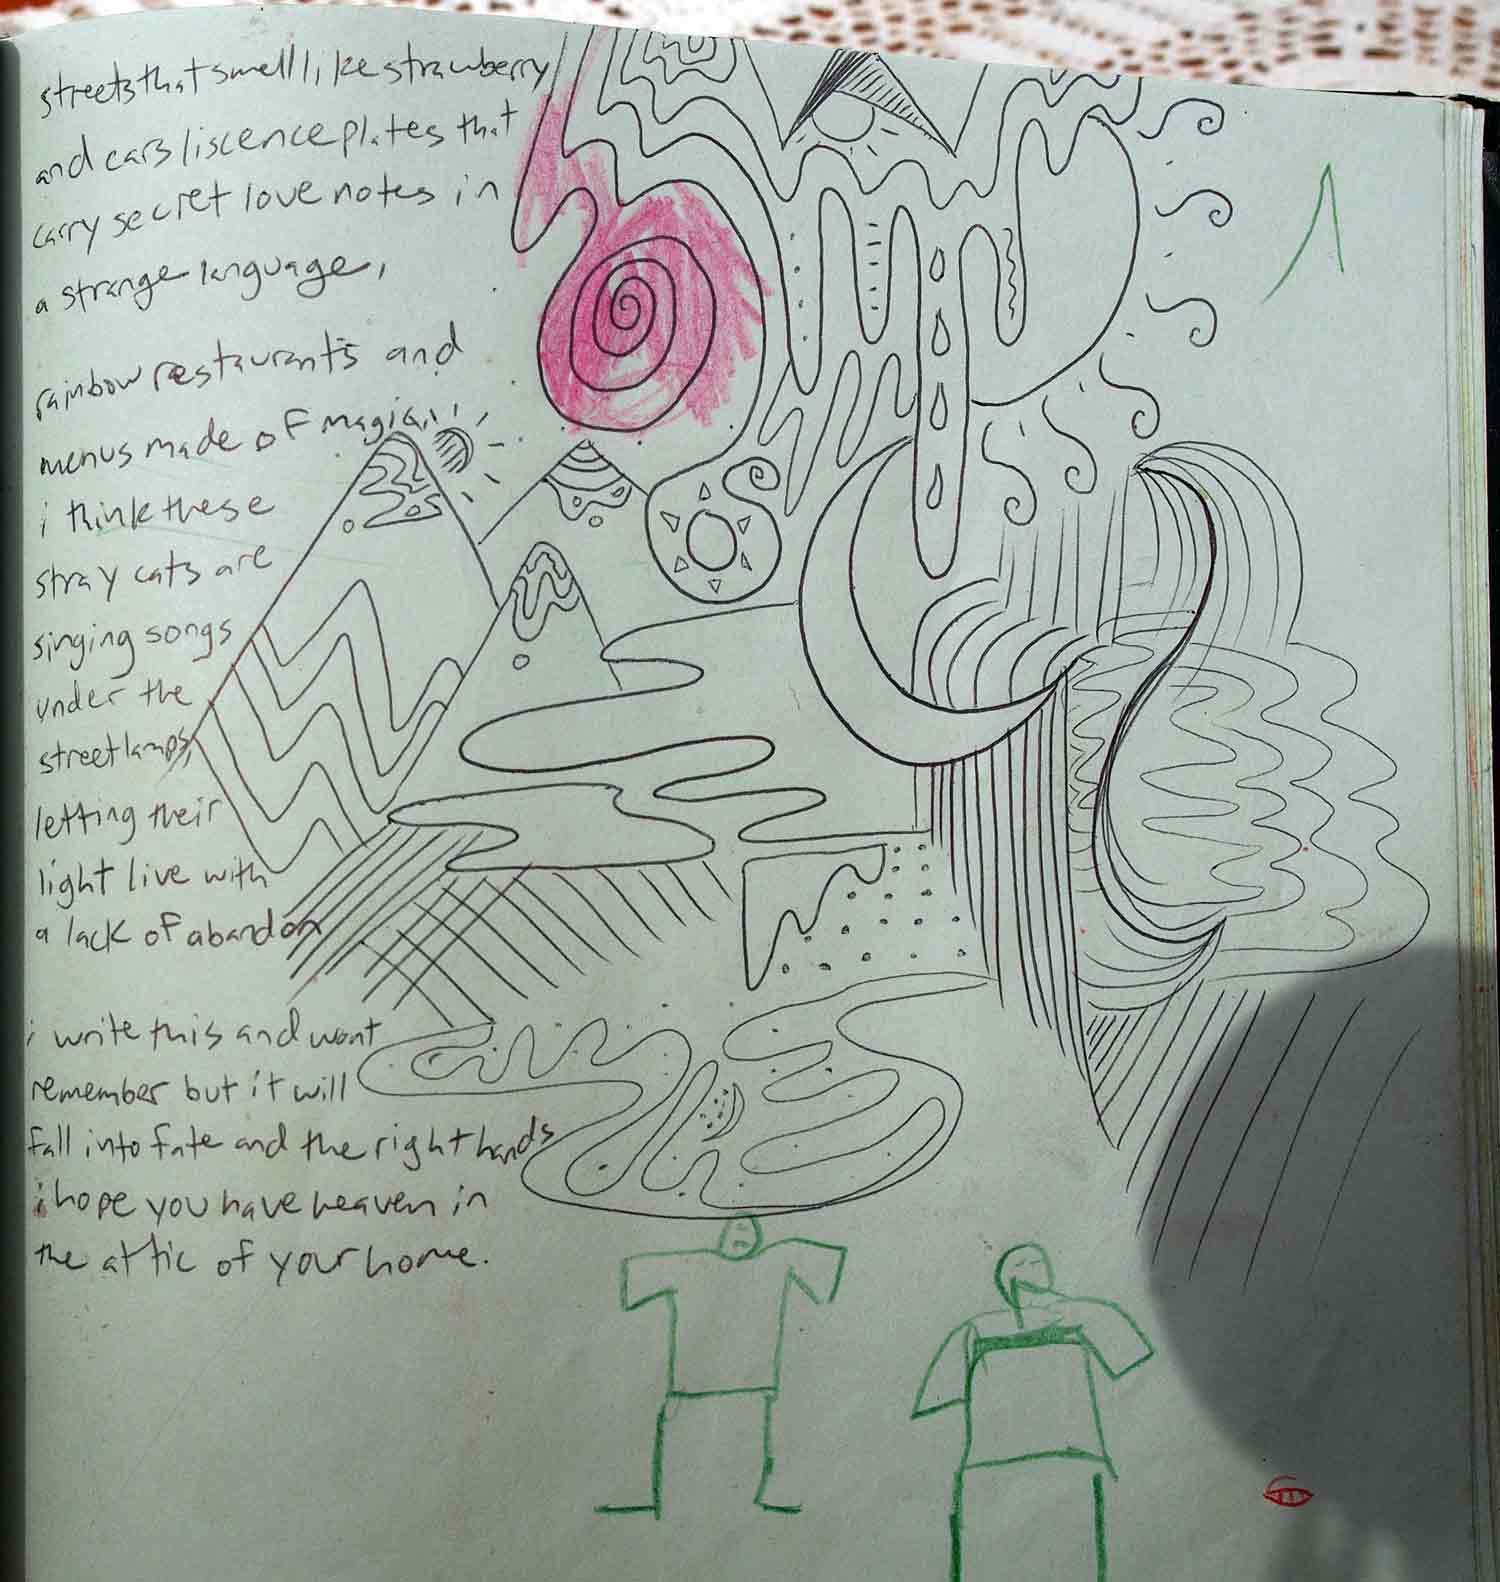 streets that smell like strawberry
and cars liscence plates that
carry secret love notes in
a strange language,
rainbow restaurants and
menus made of magic.
i think these
stray cats are
singing songs
under the
streetlamps,
letting their
light live with
a lack of abandon
i write this and wont
remember but it will
fall into fate and the right hands
i hope you have heaven in
the attic of your home.